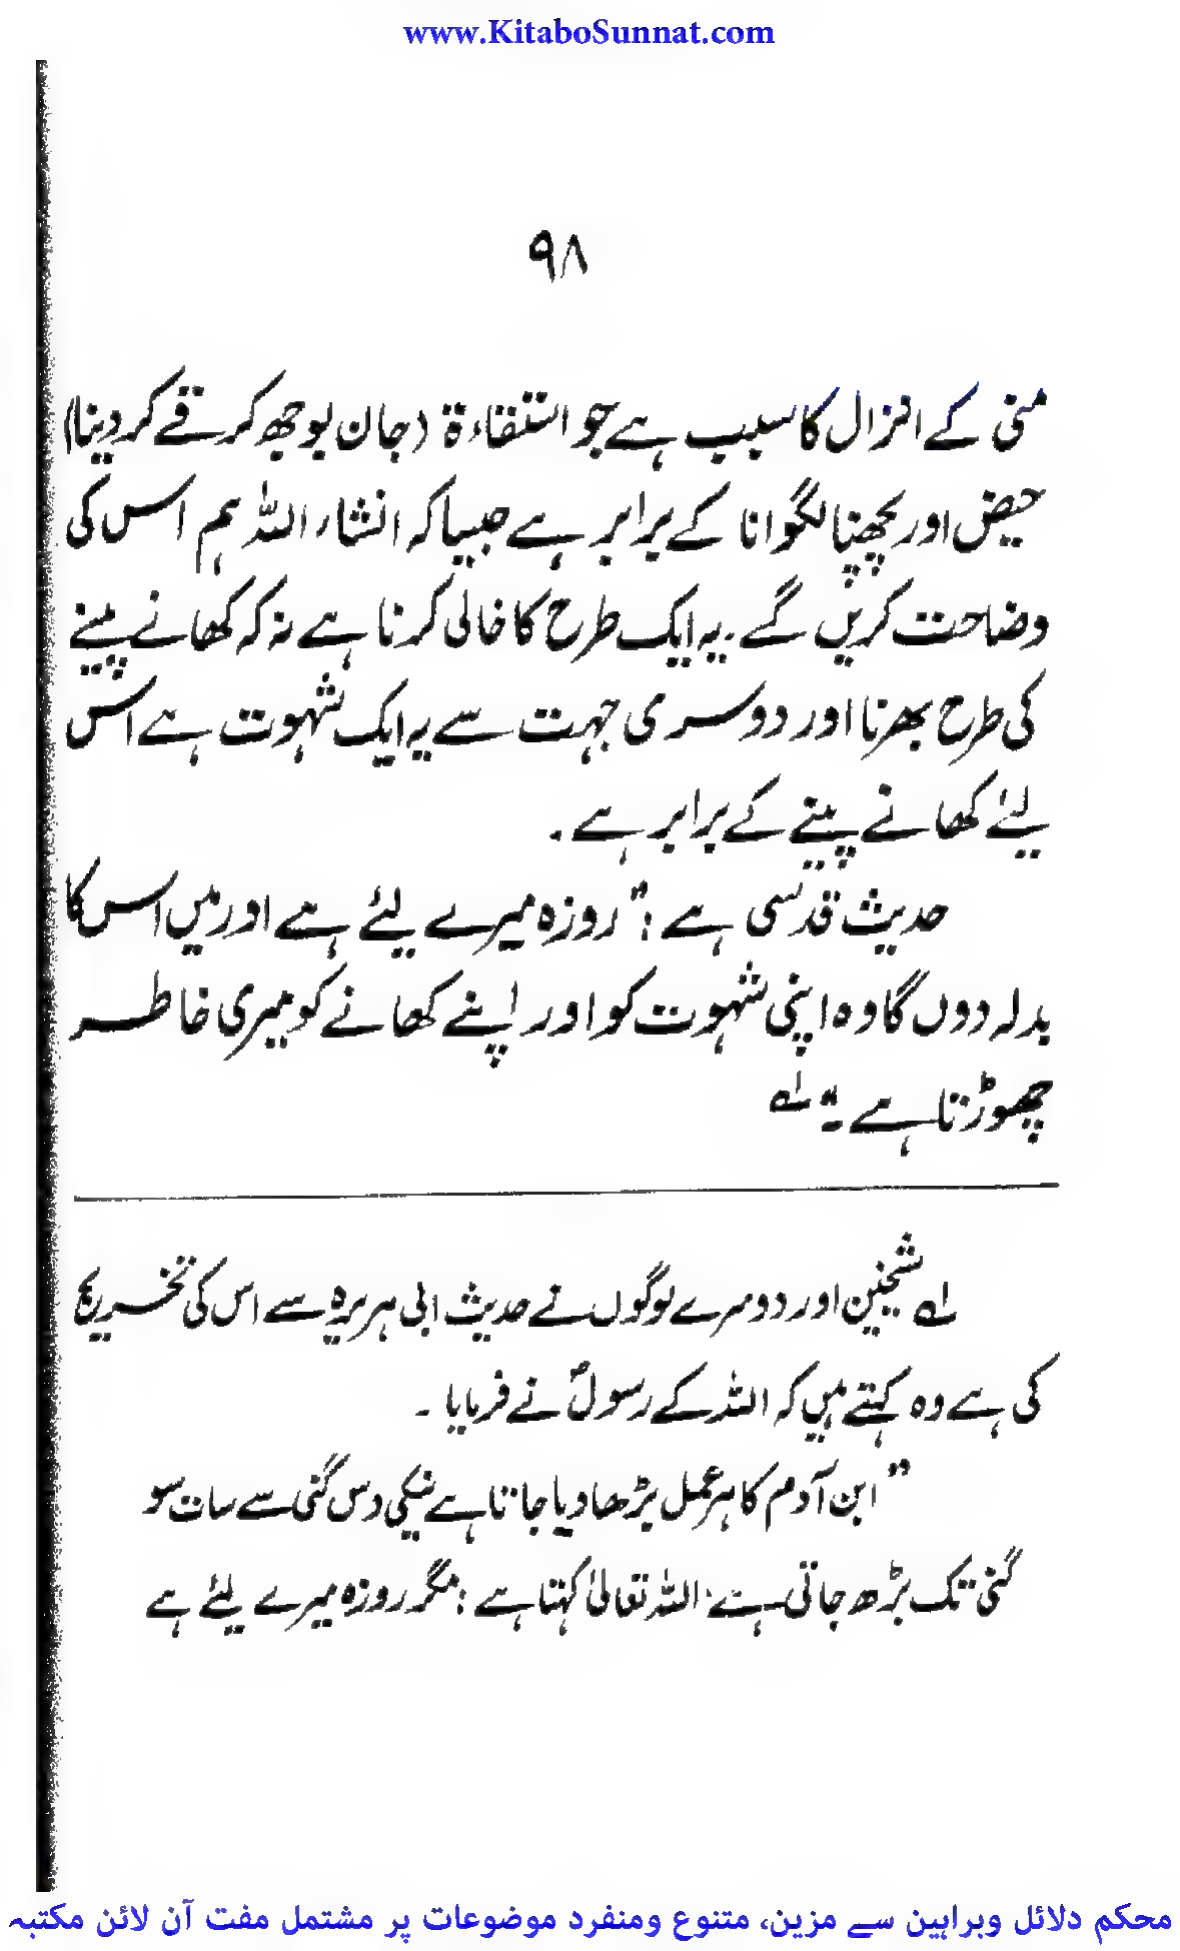 www.KitaboSunnat.com
۹۸
منی کے انزال کا سبب ہے جو استقاءۃ (جان بوجھ کر قے کر دینا)
حیض اور پچھنا لگوانا کے برابر ہے جیسا کہ انشاء اللہ ہم اس کی
وضاحت کریں گے . یہ ایک طرح کا خالی کرنا ہے نہ کہ کھانے پینے
کی طرح بھرنا اور دوسری جہت سے یہ ایک شہوت ہے اس
لیئے کھانے پینے کے برابر ہے .
حدیث قدسی ہے : " روزہ میرے لیئے ہے اور میں اس کا
بدلہ دوں گا وہ اپنی شہوت کو اور اپنے کھانے کو میری خاطر
چھوڑتا ہے " لہ
لہ شیخین اور دوسرے لوگوں نے حدیث ابی ہریرہ سے اس کی تخریج
کی ہے وہ کہتے ہیں کہ اللہ کے رسولؐ نے فرمایا ۔
" ابن آدم کا ہر عمل بڑھا دیا جاتا ہے نیکی دس گنی سے سات سو
گنی تک بڑھ جاتی ہے . اللہ تعالیٰ کہتا ہے : مگر روزہ میرے لیئے ہے
محکم دلائل وبراہین سے مزین، متنوع ومنفرد موضوعات پر مشتمل مفت آن لائن مکتبہ